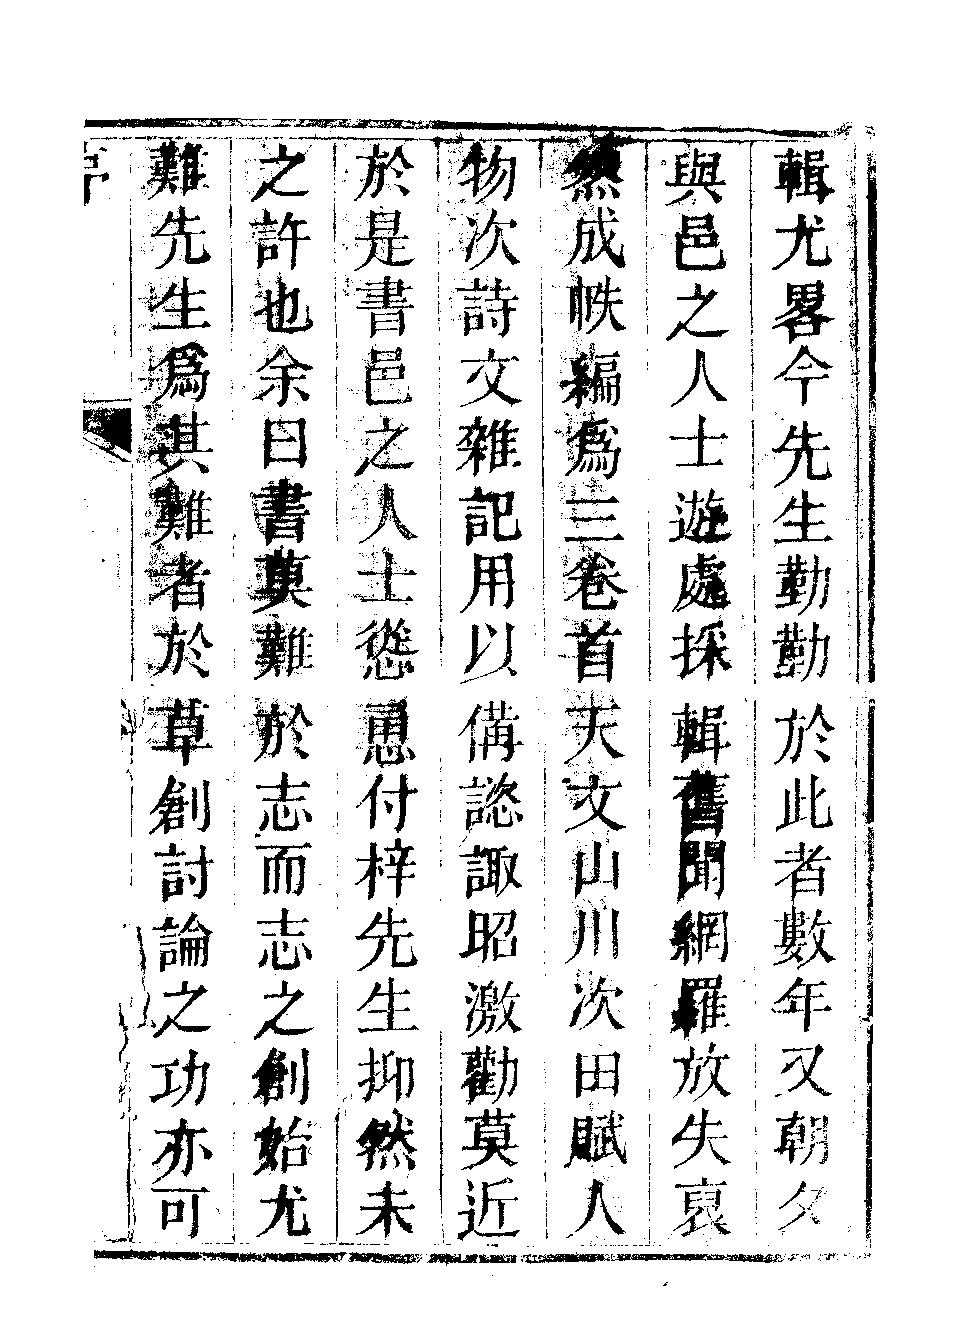 輯尤畧今先生勤勤於此者數年又朝夕
與邑之人士遊處採輯舊聞網羅放失裒
然成帙編爲三卷首天文山川次田賦人
物次詩文雜記用以備諮諏昭激勸莫近
於是書邑之人士慫恿付梓先生抑然未
之許也余曰書莫難於志而志之創始尤
難先生爲其難者於草創討論之功亦可
序